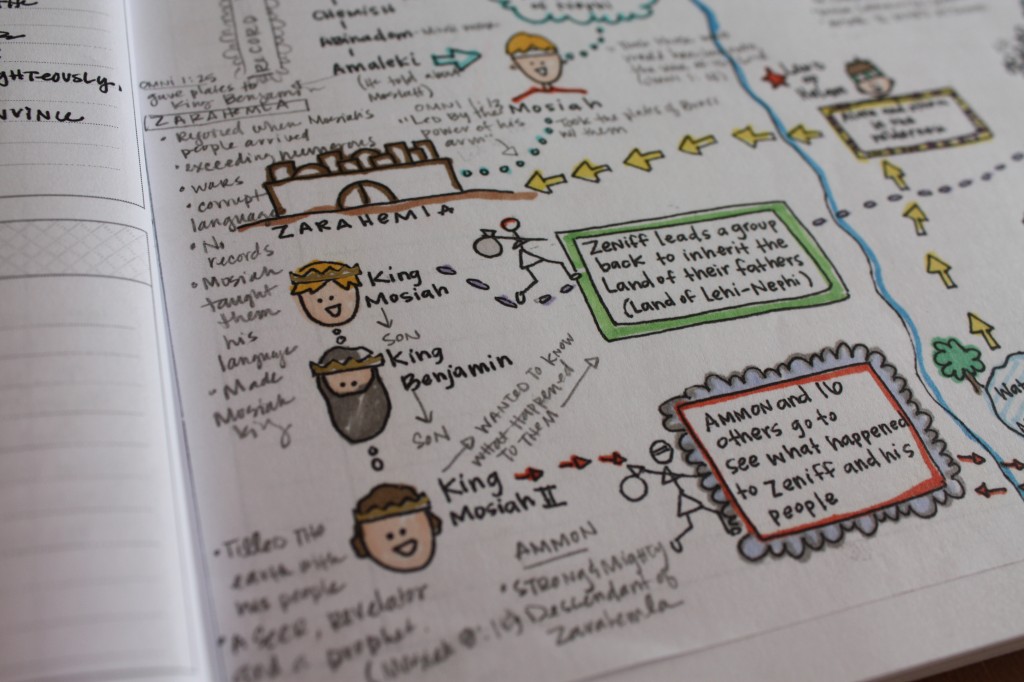 GHTEOUSLY.
CHEMISH
Abinadom
Amaleki
(He told about
Mosiah)
RECORD
OMNI 1:25
gave plates to
King Benjamin
ZARAHEMLA
• Rejoiced when Mosiah's
people arrived
• exceeding numerous
• wars
• corrupt
language
• No
records
• Mosiah
taught
them
his
language
• Made
Mosiah
King
Mosiah
OMNI 1:13
"Led by the
power of his
arm"
Took the plates of Brass
w/ them
ZARAHEMLA
King
Mosiah
SON
King
Benjamin
SON
King
Mosiah II
WANTED TO KNOW
what happened
TO THEM
ZENIFF leads a group
back to inherit the
Land of their fathers
(Land of Lehi-Nephi)
AMMON and 16
others go to
see what happened
to Zeniff and his
people
wilderness
Wat
• Tilled the
earth with
his people
• A Seer, Revelator
and a prophet
AMMON
• STRONG & Mighty
Descendant of
Zarahemla